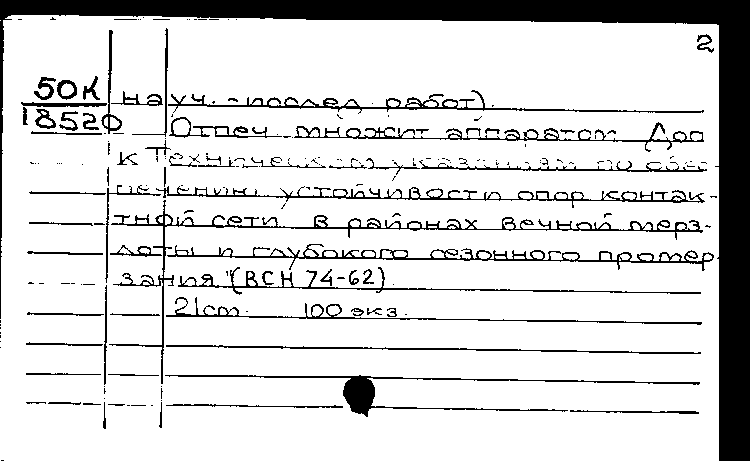 2
50К
18520
науч.-послед работ).
Отпеч множит аппаратом Доп
к Техническим указаниям по обес-
печению устойчивости опор контак-
тной сети в районах вечной мерз-
лоты и глубокого сезонного промер
зания" (ВСН 74-62)
21cm 100 экз.